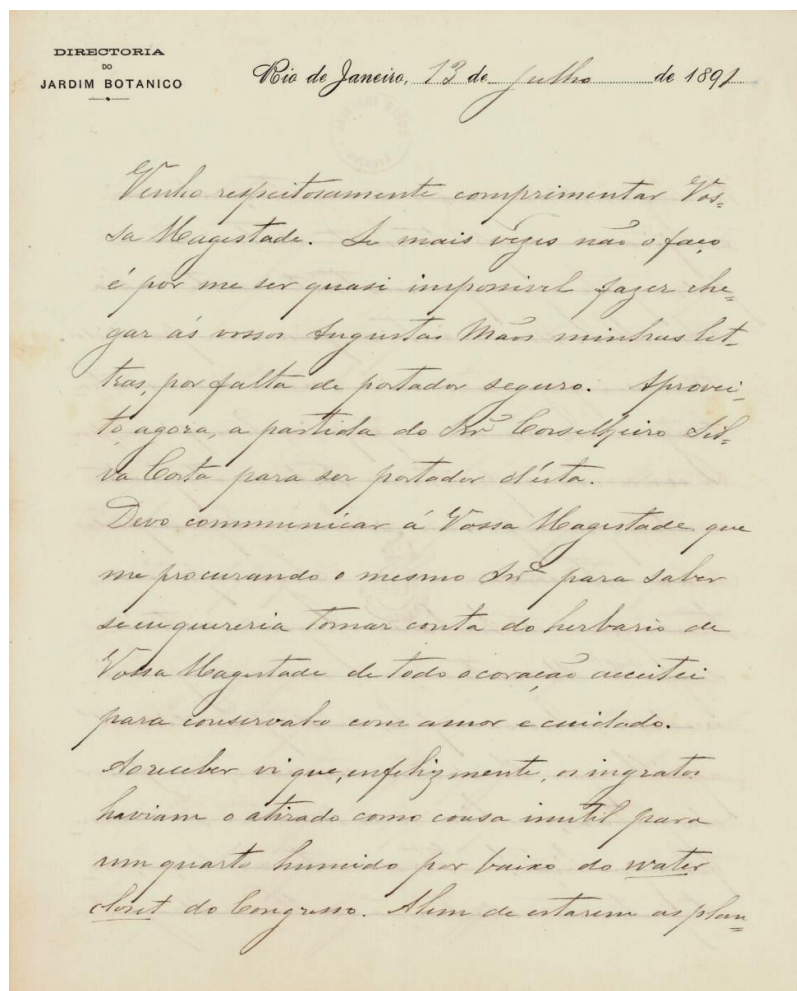 DIRECTORIA
DO
JARDIM BOTANICO
Rio de Janeiro, 13 de Julho de 1891
Venho respeitosamente comprimentar Vos=
sa Magestade. Se mais vezes não o faço
é por me ser quasi impossivel fazer che=
gar ás vossas Augustas Mãos minhas let=
tras, por falta de portador seguro. Aprovei=
to, agora, a partida do Snr Conselheiro Sil=
va Costa para ser portador d'ésta.
Devo communicar á Vossa Magestade que
me procurando o mesmo Snr para saber
se eu quereria tomar conta do herbario de
Vossa Magestade de todo o coração acceitei
para conserval-o com amor e cuidado.
Ao receber vi que, enfelizmente, os ingratos
haviam o atirado como cousa inutil para
um quarto humido por baixo do water
closet do Congresso. Alem de estarem as plan=